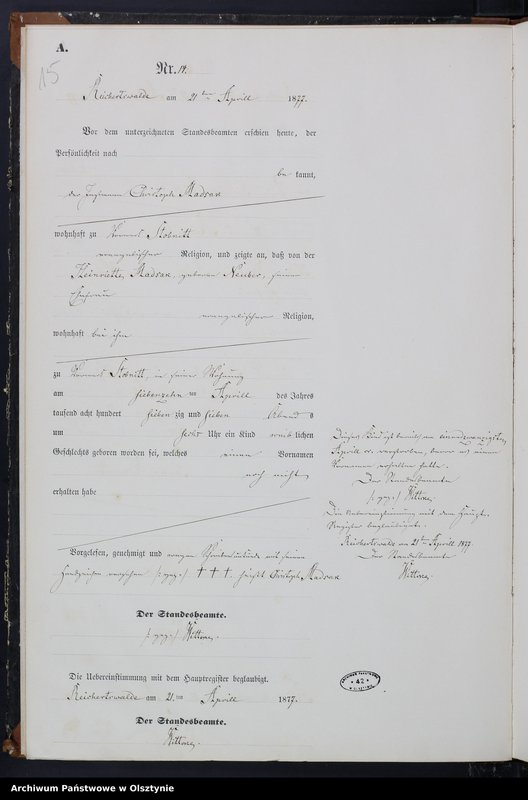 A.
15
Nr. 14.
Reichertswalde am 21ten Aprill 1877.
Vor dem unterzeichneten Standesbeamten erschien heute, der
Persönlichkeit nach
be kannt,
der Instmann Christoph Madsak
wohnhaft zu Vorwerk Stobnitt
evangelischer Religion, und zeigte an, daß von der
Heinriette Madsak, geborene Neuber, seiner
Ehefrau
evangelischer Religion,
wohnhaft bei ihm
zu Vorwerk Stobnitt, in seiner Wohnung
am siebenzehn ten Aprill des Jahres
tausend acht hundert sieben zig und sieben Abend s
um sechs Uhr ein Kind weib lichen
Geschlechts geboren worden sei, welches einen Vornamen
noch nicht
erhalten habe
Vorgelesen, genehmigt und wegen Schreibensunkunde mit seinem
Handzeichen versehen /: gez :/ † † †. heißt Christoph Madsak
Der Standesbeamte.
/: gez :/
Die Uebereinstimmung mit dem Hauptregister beglaubigt.
Reichertswalde am 21. ten Aprill 1877.
Der Standesbeamte.
Dieses Kind ist bereits am einundzwanzigsten
Aprill cr. verstorben, bevor es einen
Vornamen erhalten hatte.
Der Standesbeamte
/: gez :/
Die Uebereinstimmung mit dem Haupt-
Register beglaubigt.
Reichertswalde am 21ten Aprill 1877.
Der Standesbeamte
42
Archiwum Państwowe w Olsztynie